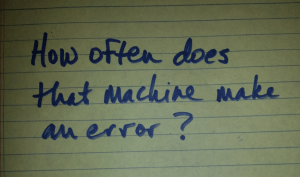 How often does
that machine make
an error?